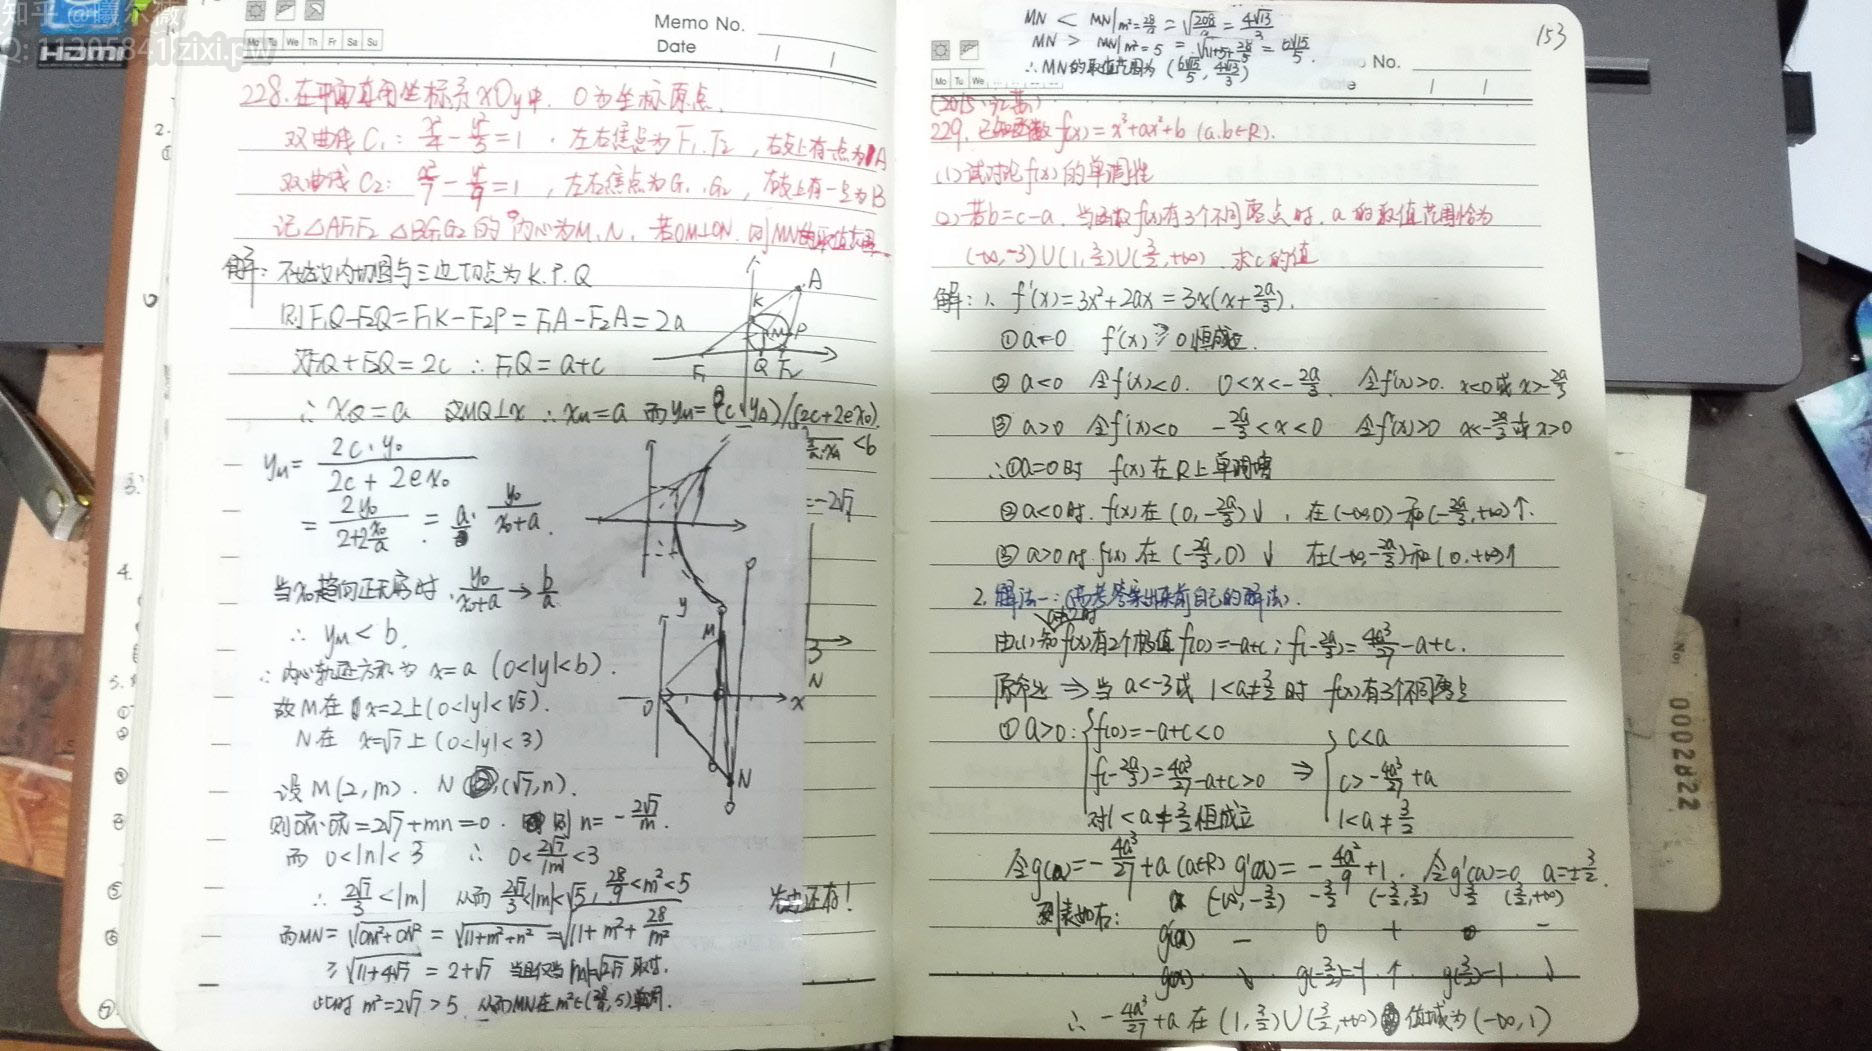 知乎 @曦尔薇
Q: 11305841 zixi.pw
HDMI
Memo No.
Date
Mo Tu We Th Fr Sa Su
228. 在平面直角坐标系xOy中, O为坐标原点,
双曲线C₁: x²/4 - y²/5 = 1 , 左右焦点为F₁, F₂, 右支上有一点为A
双曲线C₂: x²/7 - y²/9 = 1 , 左右焦点为G₁, G₂, 右支上有一点为B
记△AF₁F₂ △BG₁G₂的内心为M、N, 若OM⊥ON, 则MN的取值范围
解: 不妨设内切圆与三边切点为K.P.Q
则F₁Q-F₂Q=F₁K-F₂P=F₁A-F₂A=2a
又F₁Q+F₂Q=2c ∴F₁Q=a+c
∴x_Q=a 又MQ⊥x ∴x_M=a 而y_M=(2c·y_A)/(2c+2ex₀)
<b
=-2√7
A
K
M
P
F₁ Q F₂
y_M = 2c·y₀/(2c+2ex₀)
= 2y₀/(2+2x₀/a) = a· y₀/(x₀+a)
当x₀趋向正无穷时, y₀/(x₀+a) → b/a
∴ y_M<b.
∴内心轨迹方程为 x=a (0<|y|<b).
故M在x=2上(0<|y|<√5).
N在 x=√7上(0<|y|<3)
设M(2,m). N(√7,n).
则OM·ON=2√7+mn=0. 则n=-2√7/m.
而 0<|n|<3 ∴ 0<2√7/|m|<3
∴ 2√7/3<|m| 从而 2√7/3<|m|<√5, 28/9<m²<5
而MN=√(OM²+ON²)=√(11+m²+n²)=√(11+m²+28/m²)
≥√(11+4√7)=2+√7 当且仅当|m|=√(2√7)取对.
此时 m²=2√7>5. 从而MN在m²∈(28/9,5)单调.
y
M
O
x
N
3
N
右边还有!
MN < MN|m²=28/9 = √(208/9) = 4√13/3
MN > MN|m²=5 = √(11+5+28/5) = 6√15/5.
∴MN的取值范围为 (6√15/5, 4√13/3)
153
No.
Mo Tu We
(2015·江苏)
229. 已知函数f(x)=x³+ax²+b (a.b∈R).
(1)试讨论f(x)的单调性
(2)若b=c-a. 当函数f(x)有3个不同零点时. a的取值范围恰为
(-∞,-3)∪(1,3/2)∪(3/2,+∞). 求c的值
解: 1. f'(x)=3x²+2ax=3x(x+2a/3).
①a=0 f'(x)≥0恒成立.
②a<0 令f'(x)<0. 0<x<-2a/3. 令f'(x)>0. x<0或x>-2a/3
③a>0 令f'(x)<0 -2a/3<x<0 令f'(x)>0 x<-2a/3或x>0
∴①a=0时 f(x)在R上单调增
②a<0时. f(x)在(0,-2a/3)↓, 在(-∞,0)和(-2a/3,+∞)↑.
③a>0时. f(x)在(-2a/3,0)↓ 在(-∞,-2a/3)和(0,+∞)↑
2. 解法一: (高考答案出来前自己的解法).
由(1)知f(x)有2个极值f(0)=-a+c; f(-2a/3)=4a³/27-a+c.
原命题 ⇒ 当a<-3或1<a≠3/2时 f(x)有3个不同零点
①a>0: f(0)=-a+c<0
f(-2a/3)=4a³/27-a+c>0 ⇒
对1<a≠3/2恒成立
c<a
c>-4a³/27+a
1<a≠3/2
令g(a)=-4a³/27+a (a∈R) g'(a)=-4a²/9+1. 令g'(a)=0, a=±3/2.
列表如右: a (-∞,-3/2) -3/2 (-3/2,3/2) 3/2 (3/2,+∞)
g'(a) - 0 + 0 -
g(a) ↓ g(-3/2)=-1 ↑ g(3/2)=1 ↓
∴ -4a³/27+a 在(1,3/2)∪(3/2,+∞)值域为(-∞,1)
No: 0002822